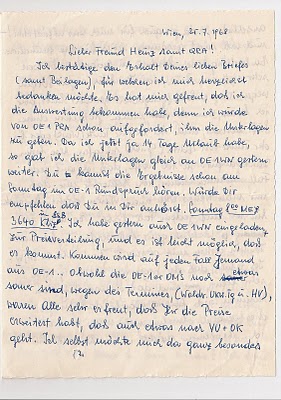 Wien, 25.7.1968
Liebe Freund Heinz samt QRA!
Ich bestätige den Erhalt Deines lieben Briefes
(samt Beilagen), für welchen ich mich herzlichst
bedanken möchte. Es hat mich gefreut, daß ich
die Auswertung bekommen habe, denn ich wurde
von OE1PRA schon aufgefordert, ihm die Unterlagen
zu geben. Da ich jetzt ja 14 Tage Urlaub habe,
so gab ich die Unterlagen gleich an OE1WN gestern
weiter. Du kannst die Ergebnisse schon am
Sonntag im OE-1 Rundspruch hören. Würde Dir
empfehlen daß Du in Dir anhörst. Sonntag 8⁰⁰ MEZ
3640 in SSB. Ich habe gestern auch OE1WN eingeladen,
zur Preisverteilung, und es ist leicht möglich, daß
er kommt. Kommen wird auf jeden Fall jemand
aus OE-1.. Obwohl die OE-1er OMS noch etwas
sauer sind, wegen des Termines, (Weldr. UKW.tg u. HV),
waren Alle sehr erfreut, daß Ihr die Preise
erweitert habt, daß auch etwas nach YU + OK
geht. Ich selbst möchte mich da ganz besonders